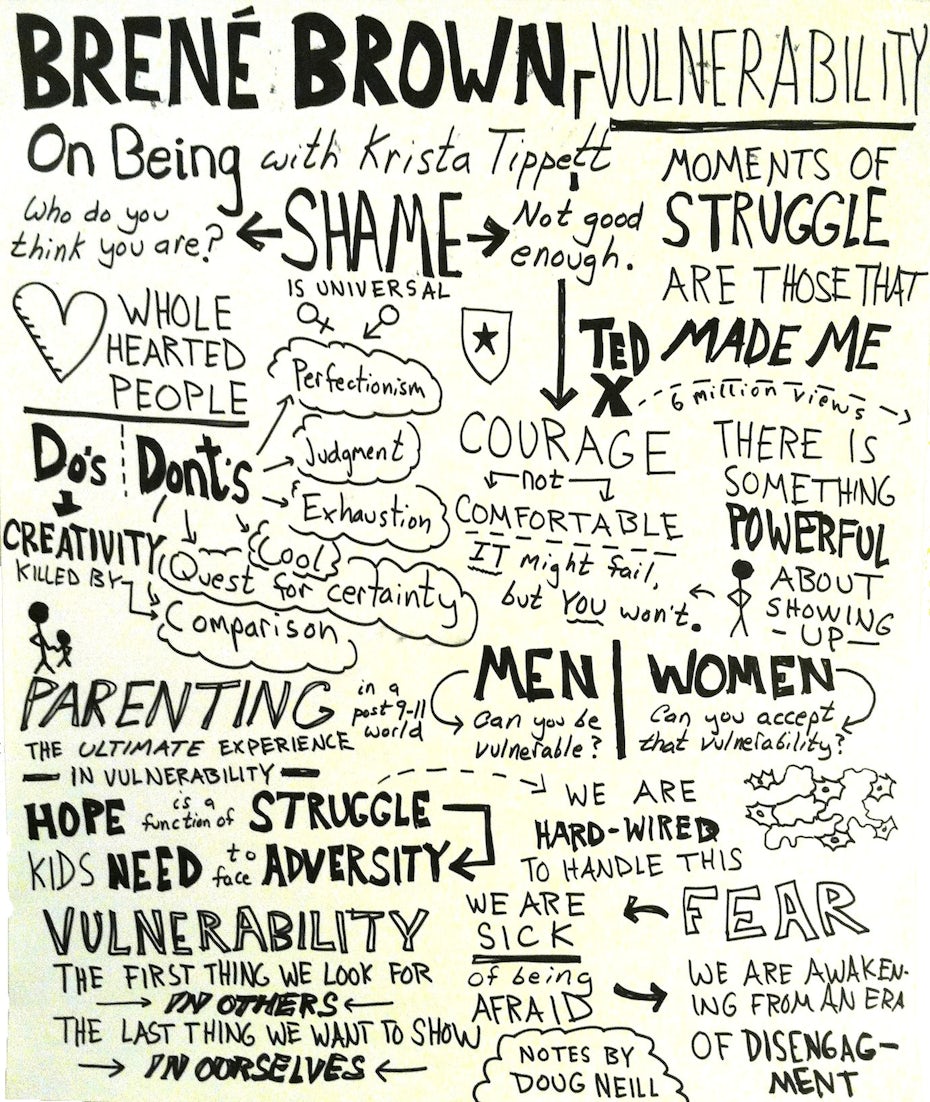 BRENÉ BROWN
VULNERABILITY
On Being with Krista Tippett
Who do you
think you are?
SHAME
IS UNIVERSAL
Not good
enough.
MOMENTS OF
STRUGGLE
ARE THOSE THAT
MADE ME
WHOLE
HEARTED
PEOPLE
Do's
Dont's
Perfectionism
Judgment
Exhaustion
Cool
Quest for certainty
Comparison
CREATIVITY
KILLED BY
TED
X
6 million views
COURAGE
not
COMFORTABLE
IT might fail,
but YOU won't.
THERE IS
SOMETHING
POWERFUL
ABOUT
SHOWING
-UP-
PARENTING
in a
post 9-11
world
THE ULTIMATE EXPERIENCE
IN VULNERABILITY
MEN
Can you be
vulnerable?
WOMEN
Can you accept
that vulnerability?
HOPE is a function of STRUGGLE
KIDS NEED to face ADVERSITY
WE ARE
HARD-WIRED
TO HANDLE THIS
VULNERABILITY
THE FIRST THING WE LOOK FOR
IN OTHERS
THE LAST THING WE WANT TO SHOW
IN OURSELVES
FEAR
WE ARE
SICK
of being
AFRAID
WE ARE AWAKEN-
ING FROM AN ERA
OF DISENGAG-
MENT
NOTES BY
DOUG NEILL